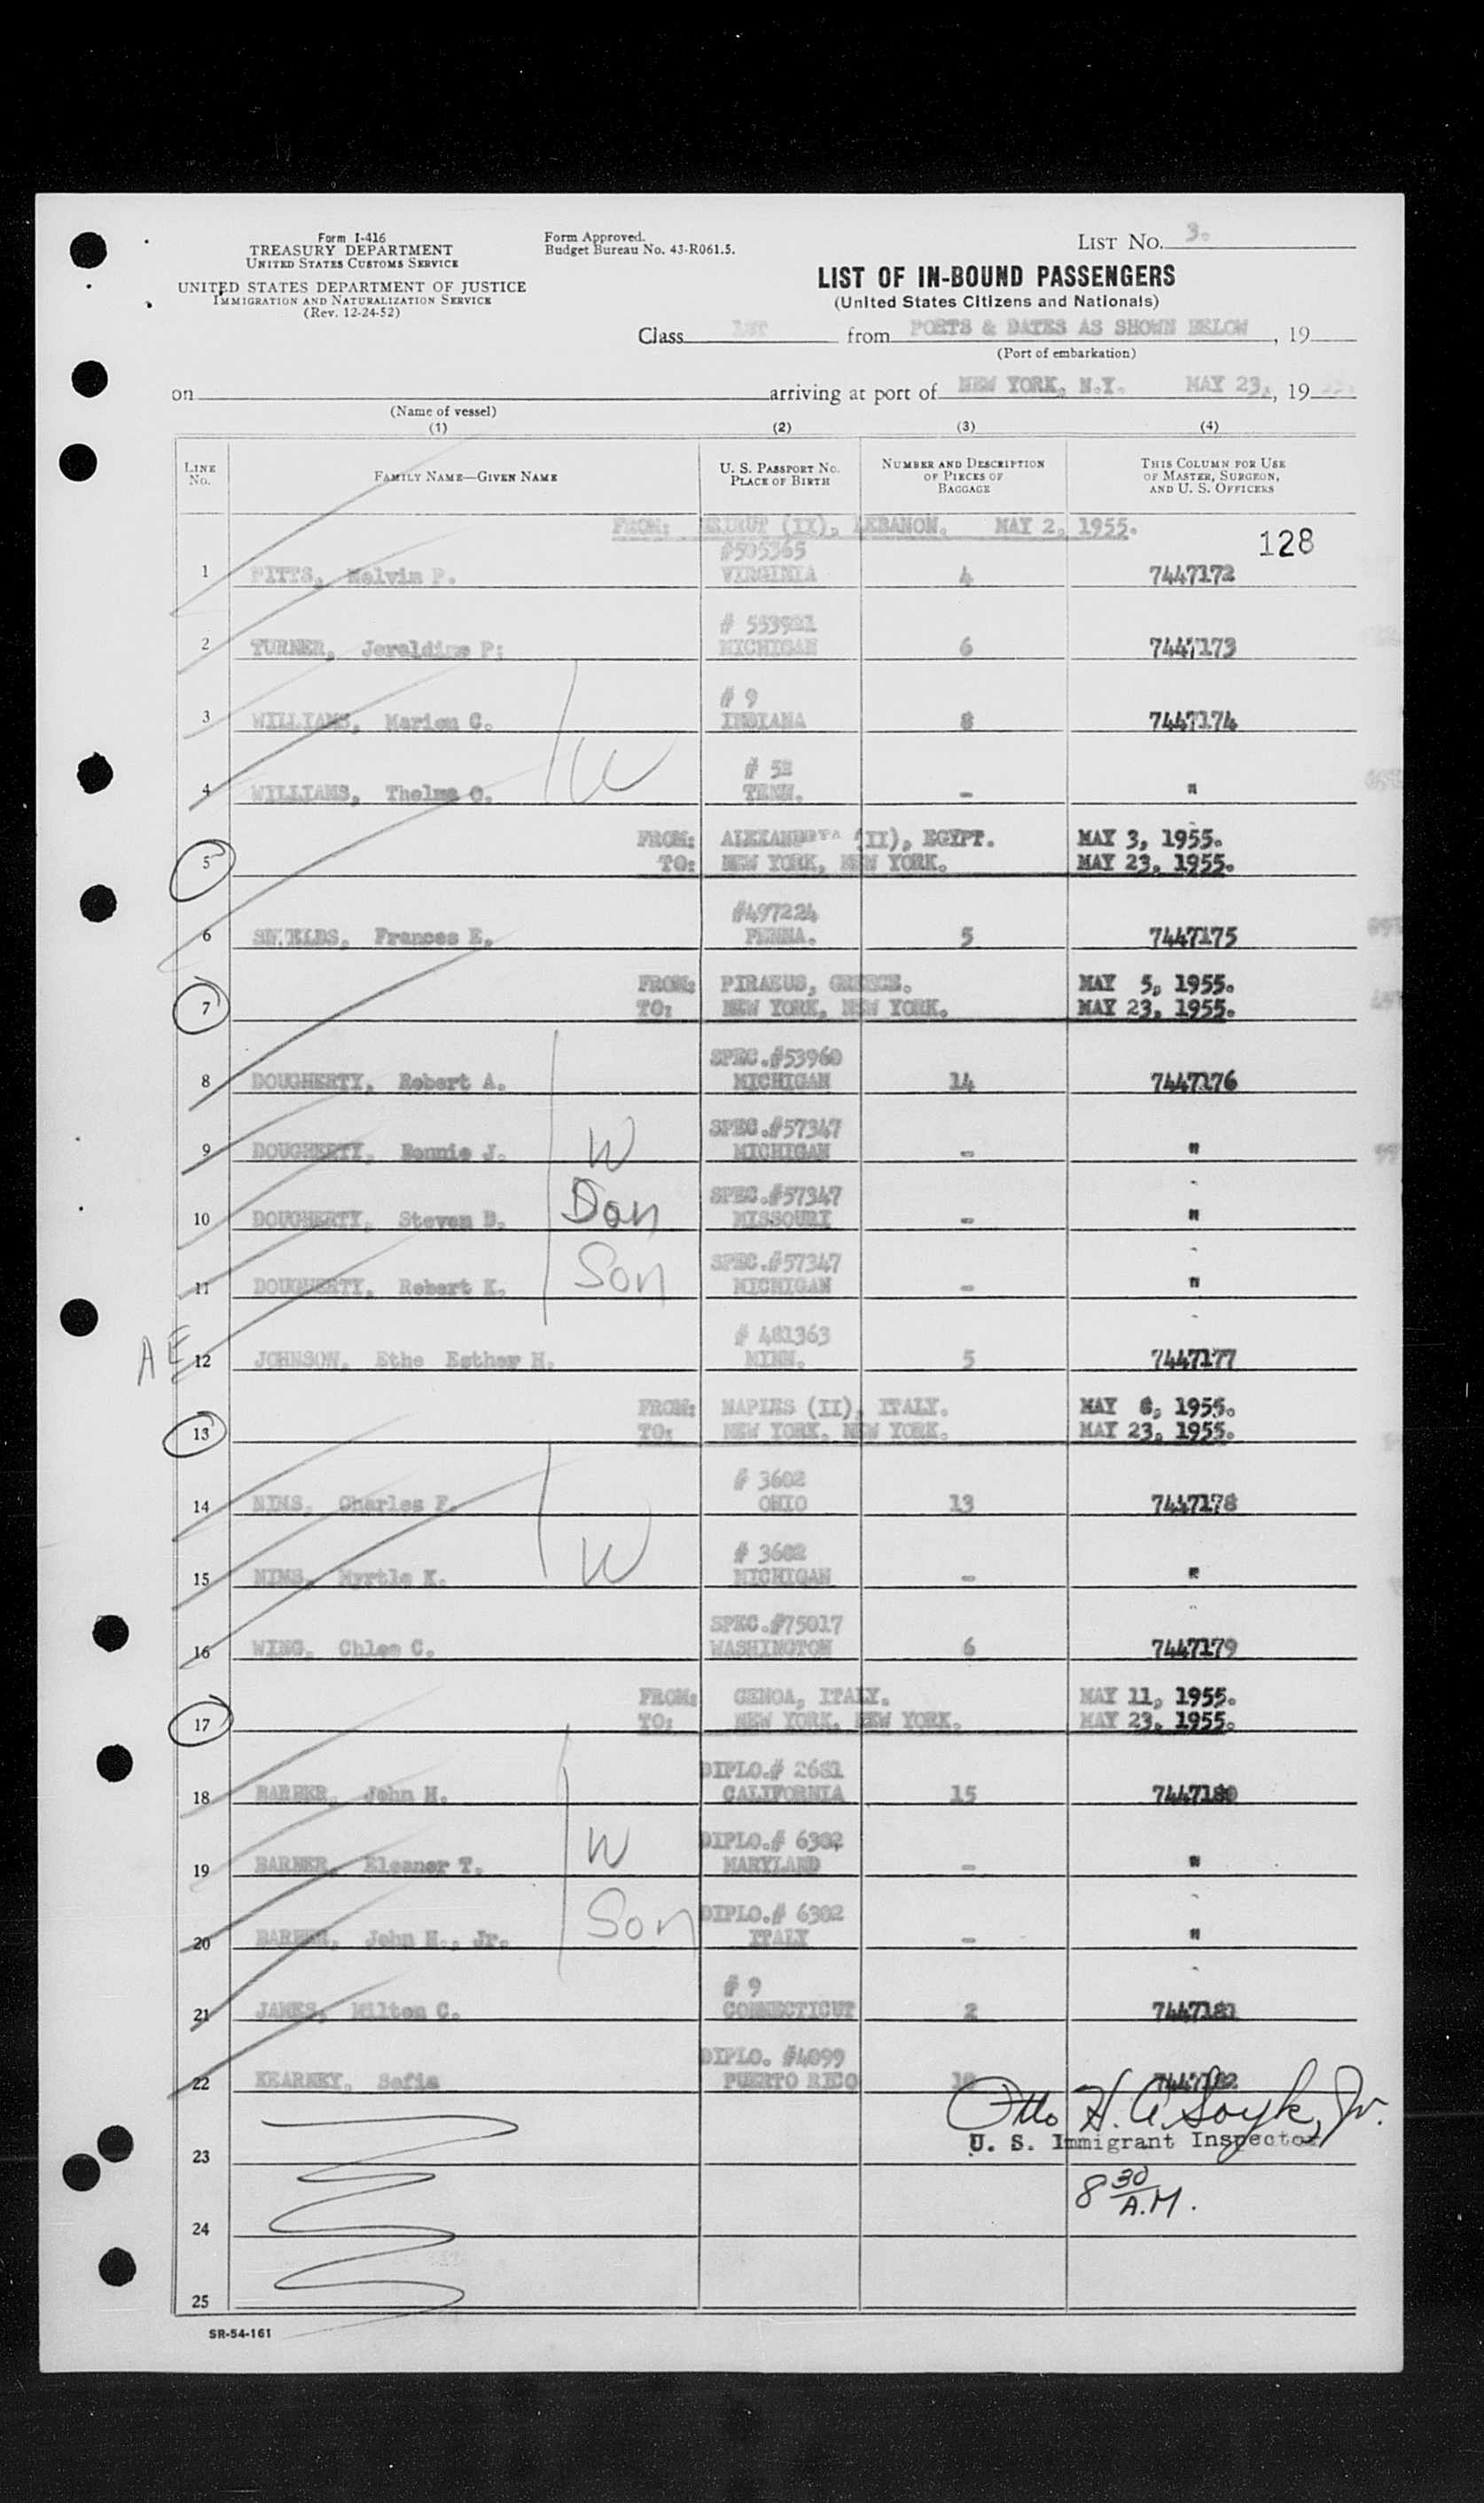 Form I-416
TREASURY DEPARTMENT
UNITED STATES CUSTOMS SERVICE
UNITED STATES DEPARTMENT OF JUSTICE
IMMIGRATION AND NATURALIZATION SERVICE
(Rev. 12-24-52)
Form Approved.
Budget Bureau No. 43-R061.5.
LIST NO. 3.
LIST OF IN-BOUND PASSENGERS
(United States Citizens and Nationals)
Class 1ST from PORTS & DATES AS SHOWN BELOW, 19
(Port of embarkation)
on arriving at port of NEW YORK, N.Y. MAY 23, 19
(Name of vessel)
(1) (2) (3) (4)
LINE NO. FAMILY NAME—GIVEN NAME U. S. PASSPORT NO. PLACE OF BIRTH NUMBER AND DESCRIPTION OF PIECES OF BAGGAGE THIS COLUMN FOR USE OF MASTER, SURGEON, AND U. S. OFFICERS
FROM: BEIRUT (II), LEBANON. MAY 2, 1955.
128
#505365
1 PITTS, Melvin P. VIRGINIA 4 7447172
2 TURNER, Jeraldine P. MICHIGAN 6 7447173
# 9
3 WILLIAMS, Marion C. INDIANA 8 7447174
W
4 WILLIAMS, Thelma C. TENN. - "
FROM: ALEXANDRIA (II), EGYPT. MAY 3, 1955.
5 TO: NEW YORK, NEW YORK. MAY 23, 1955.
#497224
6 SHIELDS, Frances E. PENNA. 5 7447175
FROM: PIRAEUS, GREECE. MAY 5, 1955.
7 TO: NEW YORK, NEW YORK. MAY 23, 1955.
SPEC.#53960
8 DOUGHERTY, Robert A. MICHIGAN 14 7447176
SPEC.#57347
9 DOUGHERTY, Bonnie J. W MICHIGAN - "
SPEC.#57347
10 DOUGHERTY, Steven B. MISSOURI - "
SPEC.#57347
11 DOUGHERTY, Robert K. Son MICHIGAN - "
AE
# 481363
12 JOHNSON, Ethe Esther H. MINN. 5 7447177
FROM: NAPLES (II), ITALY. MAY 8, 1955.
13 TO: NEW YORK, NEW YORK. MAY 23, 1955.
# 3602
14 NIMS, Charles F. OHIO 13 7447178
# 3602
15 NIMS, Myrtle K. W MICHIGAN - "
SPEC.#75017
16 WING, Chloe C. WASHINGTON 6 7447179
FROM: GENOA, ITALY. MAY 11, 1955.
17 TO: NEW YORK, NEW YORK. MAY 23, 1955.
DIPLO.# 2681
18 BARBER, John H. CALIFORNIA 15 7447180
DIPLO.# 6302
19 BARBER, Eleanor T. W MARYLAND - "
DIPLO.# 6302
20 BARBER, John H., Jr. Son ITALY - "
# 9
21 JAMES, Milton C. CONNECTICUT 2 7447181
DIPLO. #4099
22 KEARNEY, Sofia PUERTO RICO 10 7447182
Otto H. A. Soyk, Jr.
U. S. Immigrant Inspector
23
8 30/A.M.
24
25
SR-54-161